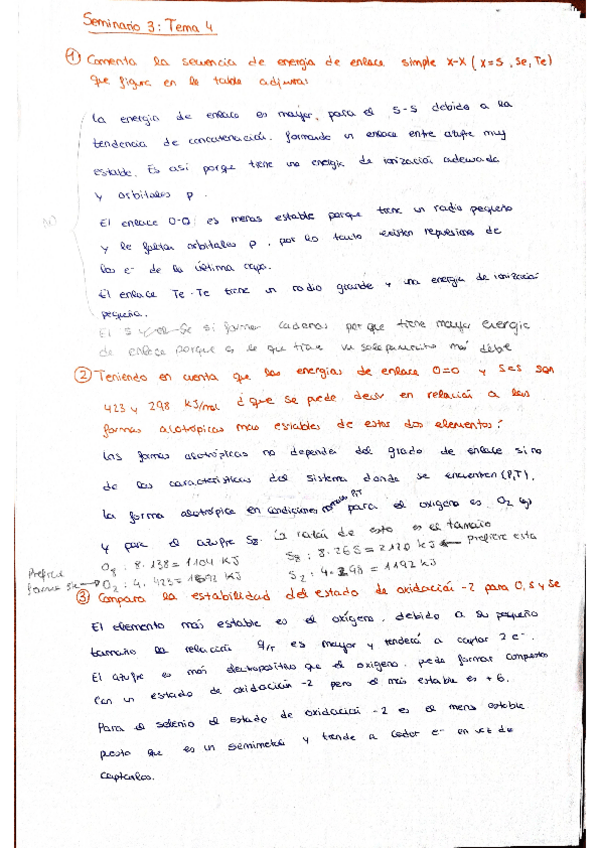 Seminario 3: Tema 4
① Comenta la secuencia de energía de enlace simple X-X (X=S, Se, Te)
que figura en la tabla adjunta
La energía de enlace es mayor, para el S-S debido a la
tendencia de concatenación. formando un enlace entre azufre muy
estable. Es así porque tiene una energía de ionización adecuada
y orbitales p.
El enlace O-O: es menos estable porque tiene un radio pequeño
y le faltan orbitales p, por lo tanto existen repulsiones de
los e⁻ de la última capa.
El enlace Te-Te tiene un radio grande y una energía de ionización
pequeña.
El S si formar cadenas porque tiene mayor energía
de enlace porque es le que tiene un solapamiento más débil
② Teniendo en cuenta que las energías de enlace O=O y S=S son
423 y 298 KJ/mol ¿que se puede decir en relación a las
formas alotrópicas mas estables de estos dos elementos?
Las formas alotrópicas no depende del grado de enlace sino
de las características del sistema donde se encuentren (P,T).
La forma alotrópica en condiciones normales P,T para el oxígeno es O₂ (g)
y para el azufre S₈. La razón de esto es el tamaño
O₈: 8·138 = 1104 KJ
S₈: 8·265 = 2120 KJ ← Prefiere esta
Prefiere
formar se → O₂: 4·423 = 1692 KJ
S₂: 4·298 = 1192 KJ
③ Compara la estabilidad del estado de oxidación -2 para O, S y Se
El elemento más estable es el oxígeno, debido a su pequeño
tamaño la relación q/r es mayor y tenderá a captar 2 e⁻.
El azufre es más electropositivo que el oxígeno, puede formar compuestos
con un estado de oxidación -2 pero el más estable es +6.
Para el selenio el estado de oxidación -2 es el menos estable
puesto que es un semimetal y tiende a ceder e⁻ en vez de
captarlos.